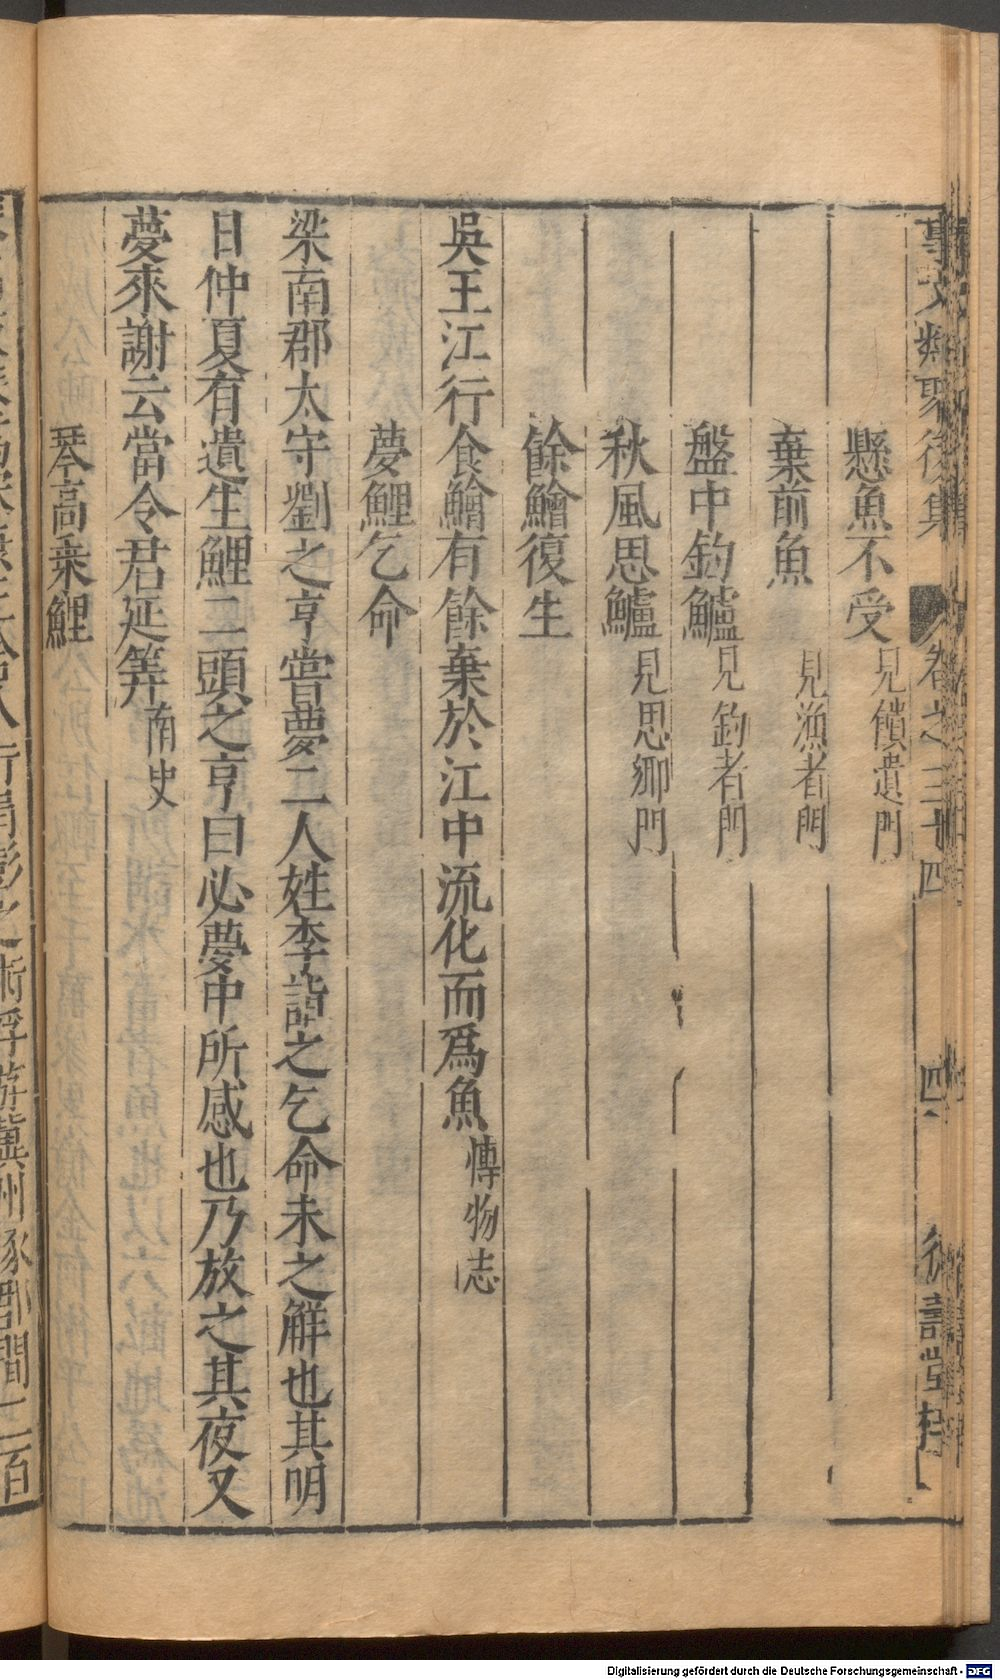 事文類聚後集 卷之三十四 四
懸魚不受 見饋遺門
棄前魚 見漁者門
盤中釣鱸 見釣者門
秋風思鱸 見思鄉門
餘鱠復生
吳王江行食鱠有餘棄於江中流化而爲魚 愽物志
夢鯉乞命
梁南郡太守劉之亨嘗夢二人姓李詣之乞命未之觧也其明
日仲夏有遺生鯉二頭之亨曰必夢中所感也乃放之其夜又
夢來謝云當令君延筭 南史
琴高乗鯉
Digitalisierung gefördert durch die Deutsche Forschungsgemeinschaft - DFG